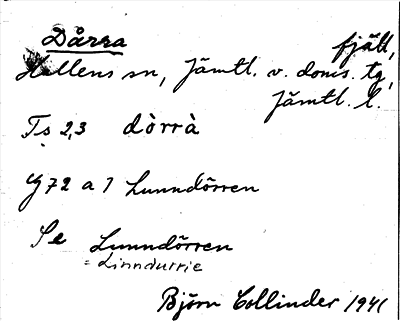 Dårra fjäll,
Hallens sn, Jämtl. v. doms. tg,
Jämtl. l.
Ts 2,3 dòrrà
Yg 72 a 1 Lunndörren
Se Lunndörren
= Linndurrie
Björn Collinder 1941